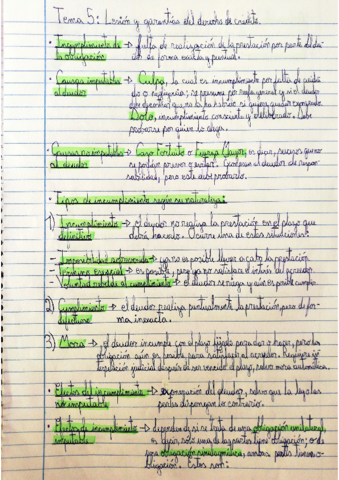 Tema 5: Lesión y garantías del derecho de crédito.
• Incumplimiento de la obligación → falta de realización de la prestación por parte del deudor de forma exacta y puntual.
• Causas imputables al deudor → Culpa, la cual es incumplimiento por falta de cuidado o negligencia; se presume por regla general y es el deudor
Dolo, incumplimiento consciente y deliberado. Debe
probarse por quien lo alega.
• Causas no imputables al deudor → Caso Fortuito o Fuerza Mayor, es decir, sucesos que no
se pudieron prever o evitar. Exoneran al deudor de responsabilidad, pero este debe probarlo.
• Tipos de incumplimiento según su naturaleza:
1) Incumplimiento definitivo → El deudor no realiza la prestación en el plazo que
debía hacerlo. Ocurre una de estas situaciones:
- Imposibilidad sobrevenida → ya no es posible llevar a cabo la prestación.
- Término esencial → es posible, pero ya no satisface el interés del acreedor.
- Voluntad rebelde al cumplimiento → el deudor se niega y aún es posible cumplir.
2) Cumplimiento defectuoso → el deudor realiza puntualmente la prestación pero de forma inexacta.
3) Mora → el deudor incumple con el plazo fijado para dar o hacer, pero la
obligación aún es posible para satisfacer al acreedor. Requiere
judicial después de ser vencido el plazo, salvo mora automática.
• Efectos del incumplimiento no imputable → exoneración del deudor, salvo que la ley o las
partes dispongan lo contrario.
• Efectos del incumplimiento imputable → dependen de si se trata de una obligación unilateral,
es decir, solo una de las partes tiene obligación; o de
una obligación sinalagmática, ambas partes tienen obligación. Estos son: